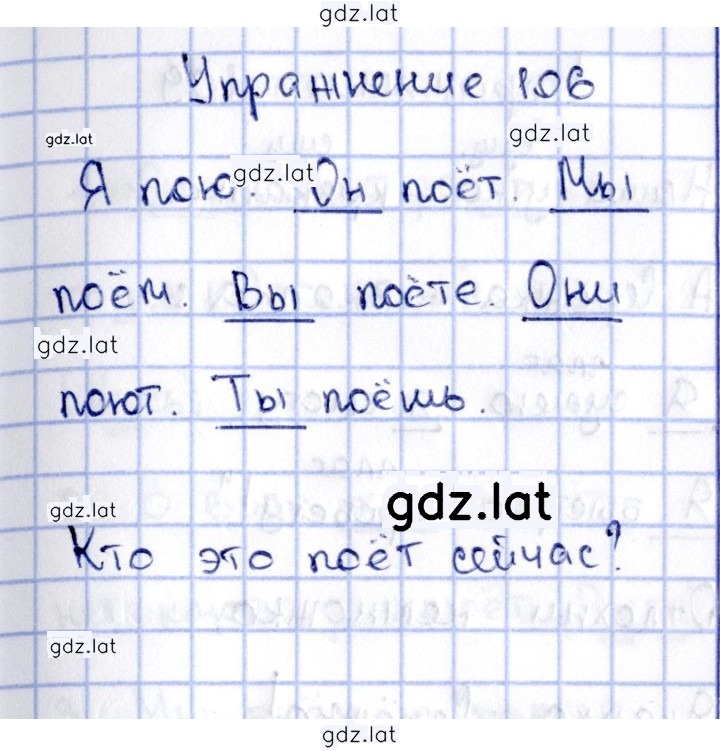 gdz.lat
Упражнение 106
gdz.lat gdz.lat
Я пою. gdz.lat Он поёт. Мы
поём. Вы поёте. Они
gdz.lat
поют. Ты поёшь.
gdz.lat gdz.lat
Кто это поёт сейчас?
gdz.lat
gdz.lat